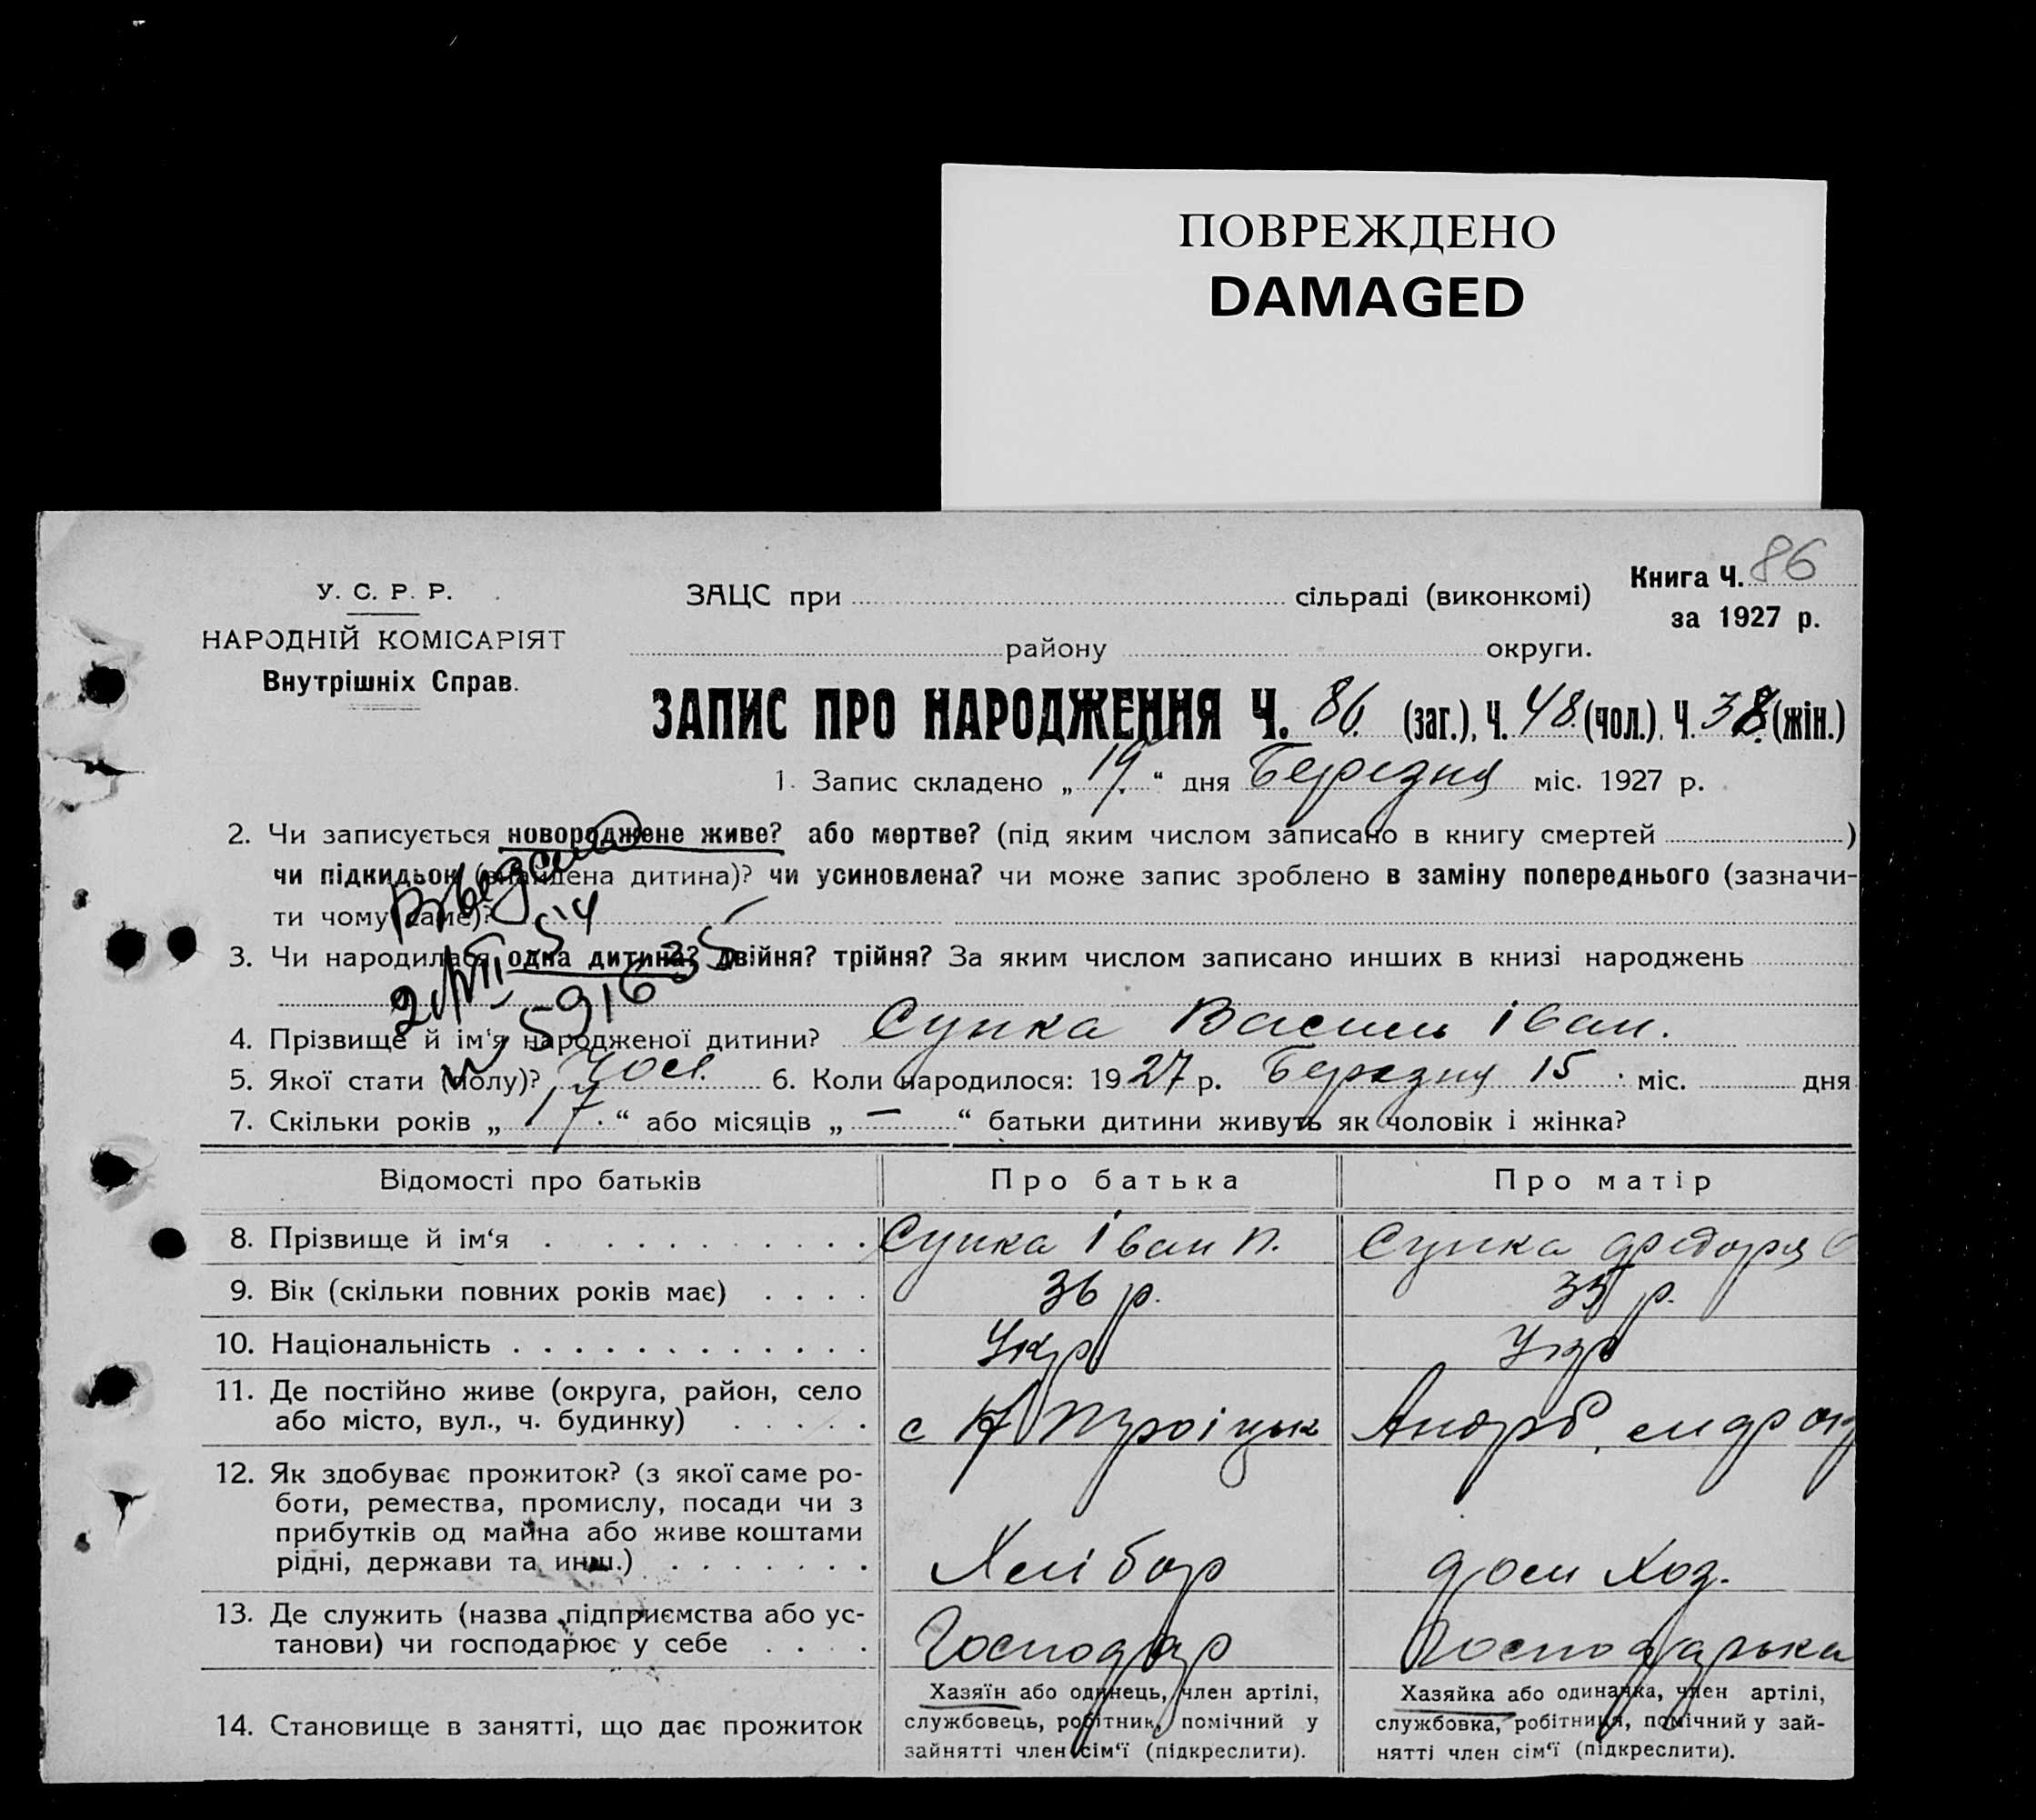 ПОВРЕЖДЕНО
DAMAGED
Книга Ч. 86
за 1927 р.
У. С. Р. Р.
НАРОДНІЙ КОМІСАРІЯТ
Внутрішніх Справ.
ЗАЦС при сільраді (виконкомі)
району округи.
ЗАПИС ПРО НАРОДЖЕННЯ Ч. 86. (заг.), Ч. 48. (чол.), Ч. 38 (жін.)
1. Запис складено „19“ дня Березня міс. 1927 р.
2. Чи записується новороджене живе? або мертве? (під яким числом записано в книгу смертей )
чи підкидьок (знайдена дитина)? чи усиновлена? чи може запис зроблено в заміну попереднього (зазначи-
ти чому саме)?
3. Чи народилася одна дитина? двійня? трійня? За яким числом записано инших в книзі народжень
591635
4. Прізвище й ім‘я народженої дитини? Супка Василь Іван.
5. Якої стати (полу)? Чол. 6. Коли народилося: 1927 р. Березня 15 міс. дня
7. Скільки років „17.“ або місяців „—“ батьки дитини живуть як чоловік і жінка?
Відомості про батьків Про батька Про матір
8. Прізвище й ім‘я Супка Іван П. Супка Федоря
9. Вік (скільки повних років має) 36 р. 35 р.
10. Національність Укр Укр
11. Де постійно живе (округа, район, село
або місто, вул., ч. будинку) с
12. Як здобуває прожиток? (з якої саме ро-
боти, ремества, промислу, посади чи з
прибутків од майна або живе коштами
рідні, держави та инш.) Хлібор дом хоз.
13. Де служить (назва підприємства або ус-
танови) чи господарює у себе Господар Господарька
14. Становище в занятті, що дає прожиток
Хазяїн або одинець, член артілі,
службовець, робітник, помічний у
зайнятті член сім‘ї (підкреслити).
Хазяйка або одиначка, член артілі,
службовка, робітниця, помічний у зай-
нятті член сім‘ї (підкреслити).